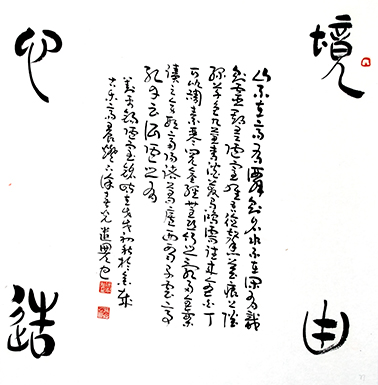 境由心造
山不在高有仙則名水不在深有龍
則靈斯是陋室惟吾德馨苔痕上階
綠草色入簾青談笑有鴻儒往來無白丁
可以調素琴閱金經無絲竹之亂耳無案
牘之勞形南陽諸葛廬西蜀子雲亭
孔子云何陋之有
劉禹錫陋室銘